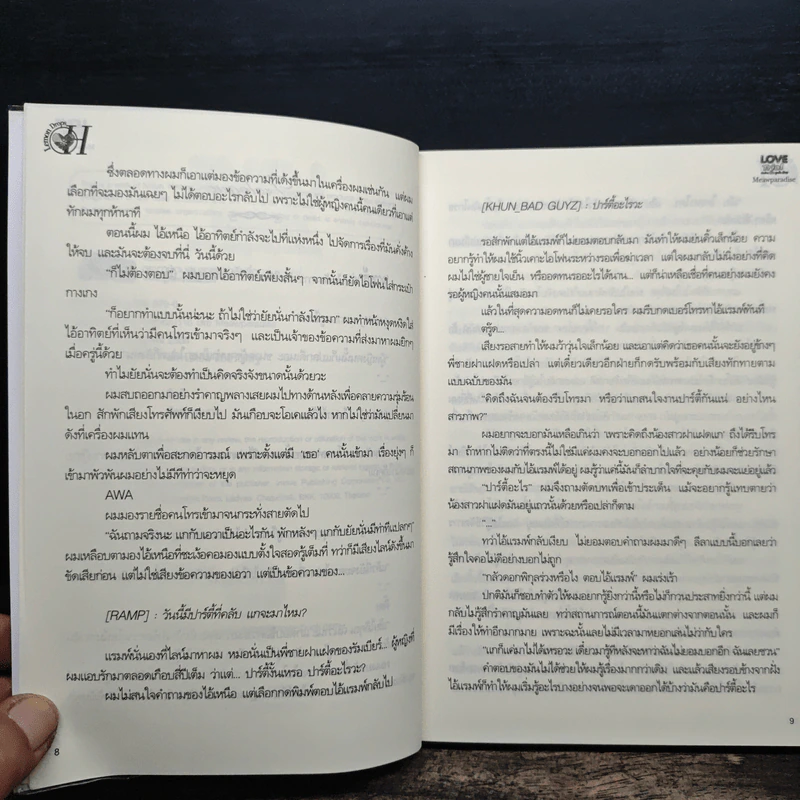 Lemon Drops
H
ซึ่งตลอดทางผมก็เอาแต่มองข้อความที่เด้งขึ้นมาในเครื่องผมเช่นกัน แต่ผม
เลือกที่จะมองมันเฉยๆ ไม่ได้ตอบอะไรกลับไป เพราะไม่ใช่ผู้หญิงคนนี้คนเดียวที่เอาแต่
ทักผมทุกห้านาที
ตอนนี้ผม ไอ้เหนือ ไอ้อาทิตย์กำลังจะไปที่แห่งหนึ่ง ไปจัดการเรื่องที่มันคั่งค้าง
ให้จบ และมันจะต้องจบที่นี่ วันนี้ด้วย
“ก็ไม่ต้องตอบ” ผมบอกไอ้อาทิตย์เพียงสั้นๆ จากนั้นก็ยัดไอโฟนใส่กระเป๋า
กางเกง
“ก็อยากทำแบบนั้นน่ะนะ ถ้าไม่ใช่ว่ายัยนั่นกำลังโทรมา” ผมทำหน้าหงุดหงิดใส่
ไอ้อาทิตย์ที่เห็นว่ามีคนโทรเข้ามาจริงๆ และเป็นเจ้าของข้อความที่ส่งมาหาผมยิกๆ
เมื่อครู่นี้ด้วย
ทำไมยัยนั่นจะต้องทำเป็นคิดจริงจังขนาดนั้นด้วยวะ
ผมสบถออกมาอย่างรำคาญพลางเสยผมไปทางด้านหลังเพื่อคลายความรุ่มร้อน
ในอก สักพักเสียงโทรศัพท์ก็เงียบไป มันเกือบจะโอเคแล้วไง หากไม่ใช่ว่ามันเปลี่ยนมา
ดังที่เครื่องผมแทน
ผมหลับตาเพื่อสะกดอารมณ์ เพราะตั้งแต่มี ‘เธอ’ คนนั้นเข้ามา เรื่องยุ่งๆ ก็
เข้ามาพัวพันผมอย่างไม่มีทีท่าว่าจะหยุด
AWA
ผมมองรายชื่อคนโทรเข้ามาจนกระทั่งสายตัดไป
“ฉันถามจริงนะ แกกับเอวาเป็นอะไรกัน พักหลังๆ แกกับยัยนั่นมีท่าทีแปลกๆ”
ผมเหลือบตามองไอ้เหนือที่ชะโงกคอมองแบบตั้งใจสอดรู้เต็มที่ ทว่าก็มีเสียงไลน์ดังขึ้นมา
ขัดเสียก่อน แต่ไม่ใช่เสียงข้อความของเอวา แต่เป็นข้อความของ...
[RAMP] : วันนี้มีปาร์ตี้ที่คลับ แกจะมาไหม?
แรมพ์นั่นเองที่ไลน์มาหาผม หมอนั่นเป็นพี่ชายฝาแฝดของรัมเบียร์... ผู้หญิงที่
ผมแอบรักมาตลอดเกือบสี่ปีเต็ม ว่าแต่... ปาร์ตี้งั้นเหรอ ปาร์ตี้อะไรวะ?
ผมไม่สนใจคำถามของไอ้เหนือ แต่เลือกกดพิมพ์ตอบไอ้แรมพ์กลับไป
8
LOVE
Meawparadise
[KHUN_BAD GUYZ] : ปาร์ตี้อะไรวะ
รอสักพักแต่ไอ้แรมพ์ก็ไม่ยอมตอบกลับมา มันทำให้ผมย่นคิ้วเล็กน้อย ความ
อยากรู้ทำให้ผมใช้นิ้วเคาะไอโฟนระหว่างรอเพื่อฆ่าเวลา แต่ใจผมกลับไม่นิ่งอย่างที่คิด
ผมไม่ใช่ผู้ชายใจเย็น หรืออดทนรออะไรได้นาน... แต่ก็น่าเหลือเชื่อที่คนอย่างผมยังคง
รอผู้หญิงคนนั้นเสมอมา
แล้วในที่สุดความอดทนก็ไม่เคยรอใคร ผมรีบกดเบอร์โทรหาไอ้แรมพ์ทันที
ตรู๊ด...
เสียงรอสายทำให้ผมว้าวุ่นใจเล็กน้อย และเอาแต่คิดว่าเธอคนนั้นจะยังอยู่ข้างๆ
พี่ชายฝาแฝดหรือเปล่า แต่เดี๋ยวเดียวอีกฝ่ายก็กดรับพร้อมกับเสียงทักทายตาม
แบบฉบับของมัน
“คิดถึงฉันจนต้องรีบโทรมา หรือว่าแกสนใจงานปาร์ตี้กันแน่ อย่างไหน
สารภาพ?”
ผมอยากจะบอกมันเหลือเกินว่า ‘เพราะคิดถึงน้องสาวฝาแฝดแก’ ถึงได้รีบโทร
มา ถ้าหากไม่ติดว่าที่ตรงนี้ไม่ใช่มีแค่ผมคงจะบอกออกไปแล้ว อย่างน้อยก็ช่วยรักษา
สถานภาพของผมกับไอ้แรมพ์ได้อยู่ ผมรู้ว่าแค่นี้มันก็ลำบากใจที่จะคุยกับผมจะแย่อยู่แล้ว
“ปาร์ตี้อะไร” ผมจึงถามตัดบทเพื่อเข้าประเด็น แม้จะอยากรู้แทบตายว่า
น้องสาวฝาแฝดมันอยู่แถวนั้นด้วยหรือเปล่าก็ตาม
“...”
ทว่าไอ้แรมพ์กลับเงียบ ไม่ยอมตอบคำถามผมมาดีๆ ลีลาแบบนี้บอกเลยว่า
รู้สึกใจคอไม่ดีอย่างบอกไม่ถูก
“กลัวดอกพิกุลร่วงหรือไง ตอบไอ้แรมพ์” ผมเร่งเร้า
ปกติมันก็ชอบทำตัวให้ผมอยากรู้ยิ่งกว่านี้หรือไม่ก็กวนประสาทยิ่งกว่านี้ แต่ผม
กลับไม่รู้สึกรำคาญมันเลย ทว่าสถานการณ์ตอนนี้มันแตกต่างจากตอนนั้น และผมก็
มีเรื่องให้ทำอีกมากมาย เพราะฉะนั้นเลยไม่มีเวลามาหยอกเล่นไม่ว่ากับใคร
“แกก็แค่มาไม่ได้เหรอวะ เดี๋ยวมารู้ทีหลังจะหาว่าฉันไม่ยอมบอกอีก ฉันเลยชวน”
คำตอบของมันไม่ได้ช่วยให้ผมรู้เรื่องมากกว่าเดิม และแล้วเสียงรอบข้างจากฝั่ง
ไอ้แรมพ์ก็ทำให้ผมเริ่มรู้อะไรบางอย่างจนพอจะเดาออกได้บ้างว่ามันคือปาร์ตี้อะไร
9